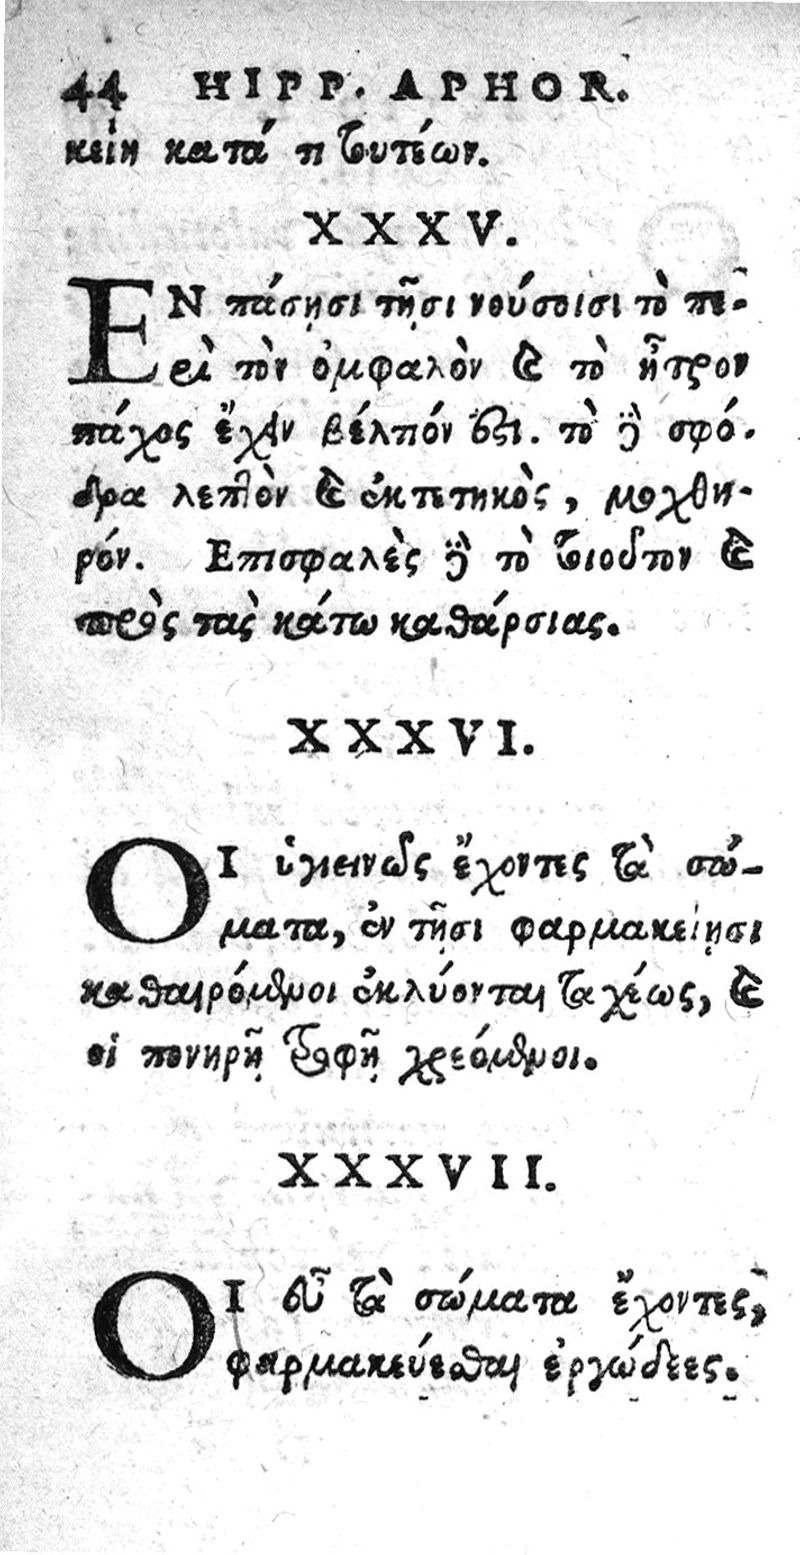 44 HIPP. APHOR.
κείη κατά τι τουτέων.
XXXV.
ΕΝ πάσῃσι τῇσι νούσοισι τὸ πε-
ρὶ τὸν ὀμφαλὸν καὶ τὸ ἦτρον
πάχος ἔχειν βέλτιόν ἐστι. τὸ δὲ σφό-
δρα λεπτὸν καὶ ἐκτετηκὸς, μοχθη-
ρόν. Επισφαλὲς δὲ τὸ τοιοῦτον καὶ
πρὸς τὰς κάτω καθάρσιας.
XXXVI.
ΟΙ ὑγιεινῶς ἔχοντες τὰ σώ-
ματα, ἐν τῇσι φαρμακείῃσι
καθαιρόμενοι ἐκλύονται ταχέως, καὶ
οἱ πονηρῇ τροφῇ χρεόμενοι.
XXXVII.
ΟΙ εὖ τὰ σώματα ἔχοντες,
φαρμακεύεσθαι ἐργώδεες.